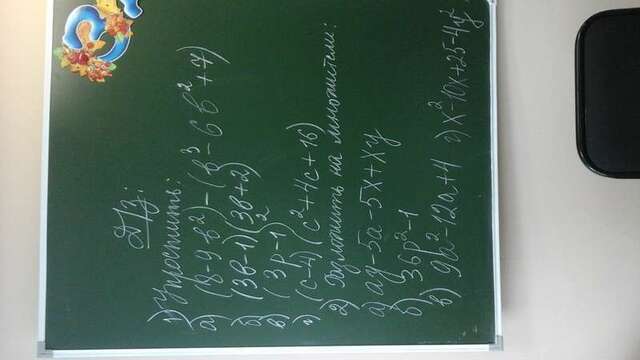 Д/з:
1) Упростить:
а) (8-9в²)-(в³-6в²+7)
б) (3в-1)(3в+2)
в) (3р-1)²
г) (с-4)(с²+4с+16)
2) Разложить на множители:
а) ау-5а-5х+ху
б) 36р²-1
в) 9а²-12а+4 г) х²-10х+25-4у²